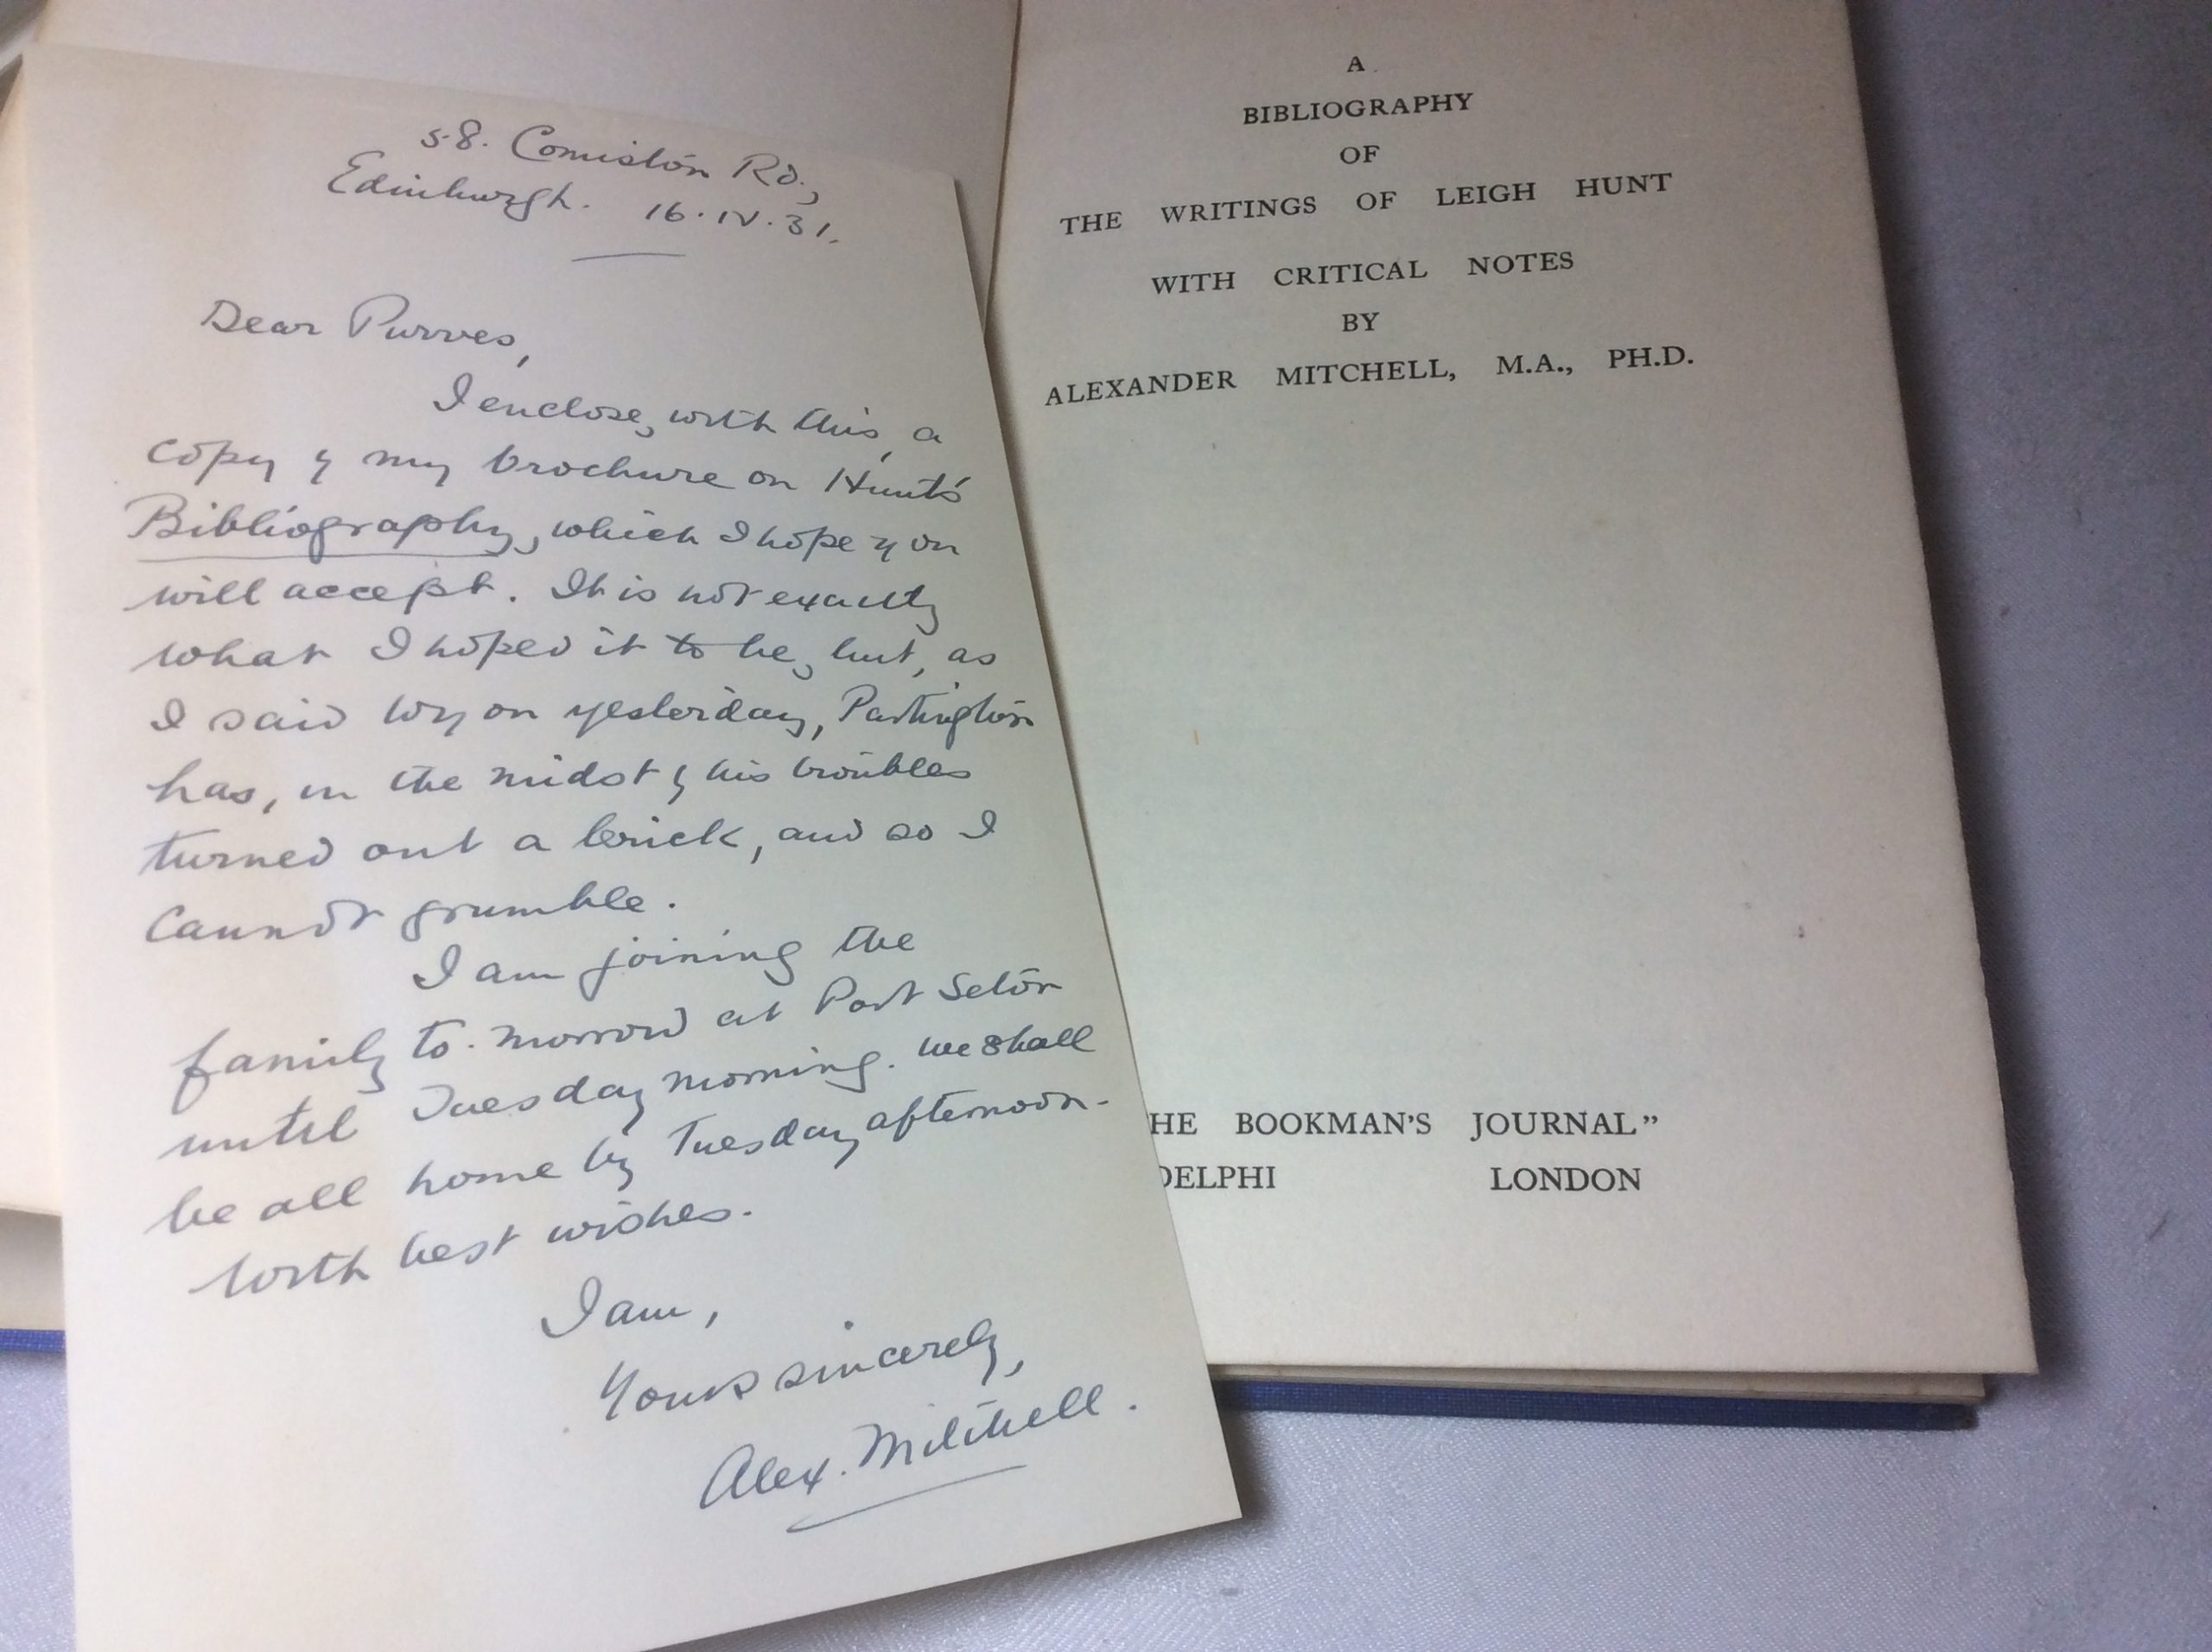 58. Comiston Rd.,
Edinburgh. 16.IV.31.
Dear Purves,
I enclose, with this, a
copy of my brochure on Hunt's
Bibliography, which I hope you
will accept. It is not exactly
what I hoped it to be, but, as
I said to you yesterday, Partington
has, in the midst of his troubles
turned out a brick, and so I
cannot grumble.
I am joining the
family to-morrow at Port Seton
until Tuesday morning. We shall
be all home by Tuesday afternoon.
With best wishes.
I am,
Yours sincerely,
Alex. Mitchell.
A
BIBLIOGRAPHY
OF
THE WRITINGS OF LEIGH HUNT
WITH CRITICAL NOTES
BY
ALEXANDER MITCHELL, M.A., PH.D.
HE BOOKMAN'S JOURNAL”
DELPHI LONDON